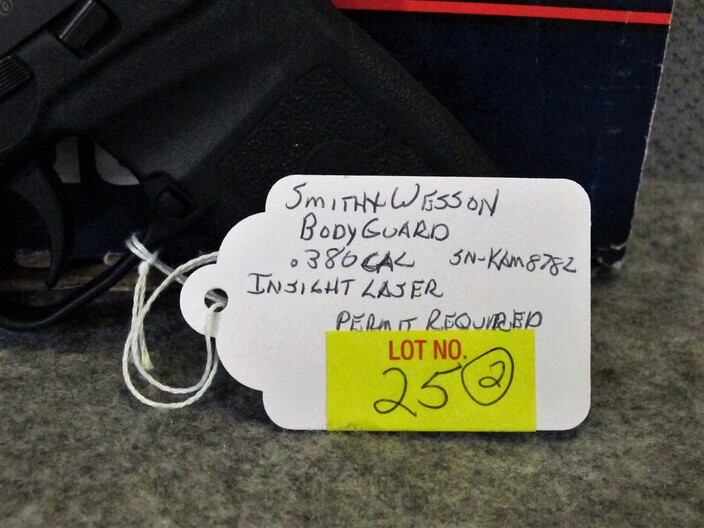 Smith & Wesson
Body Guard
.380 CAL SN-KAM8782
Insight Laser
Permit Required
LOT NO.
25 2